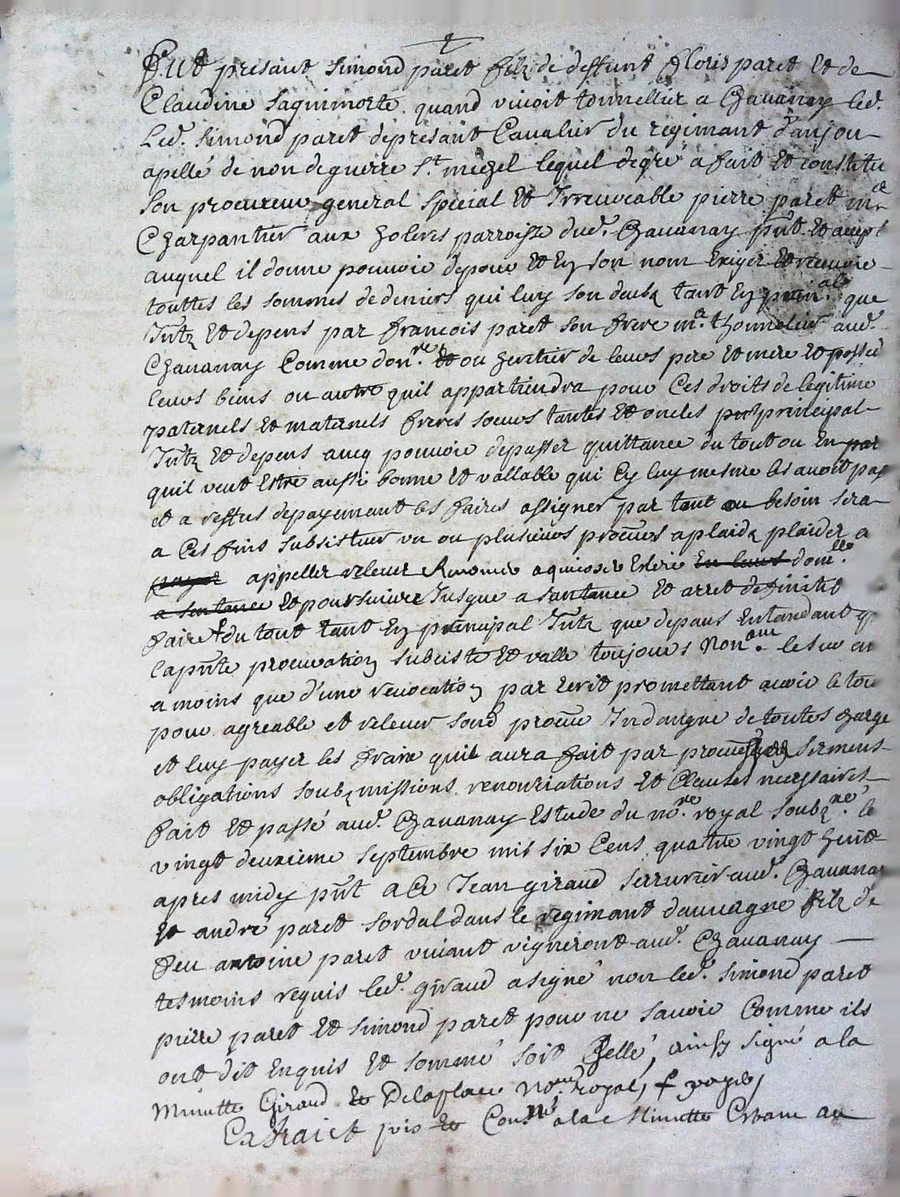 Fut presant Simond paret filz de deffunt Floris paret Et de
Claudine saquimorte quand vivoit tonnellier a Chauanay led.
Led. Simond paret depresant Cavalier du regimant d'anjou
apellé de non de guerre St. michel lequel degre a fait Et constitue
Son procureur general special Et Irreuocable pierre paret me
Charpantier aux parroisse dud. Chauanay pnt Et accept
auquel il donne pouvoir depour Et En son nom Exiger Et recevoir
touttes les sommes de deniers qui luy son deubz tant En prinal que
Intz Et depens par francois paret son frere me thonnelier aud.
Chauanay Comme donre Et ou heritier de leurs pere Et mere Et possed
leurs biens ou autre quil appartiendra pour Ces droits de legitime
paternels Et maternels freres soeurs tantes Et oncles principal
Intz Et depens aueq pouvoir depasser quittance du tout ou En par
quil veut Estre aussi bonne Et vallable qui Cy luy mesme les avoit pas
et a reffus depayemant les faires assigner par tout ou besoin sera
a Ces fins subsistuer un ou plusieurs procurs a plaidz plaider a
appeller relever Renoncer aquiescer Eslire En leurs domlle
a santance Et poursuivre Jusque a santance Et arret definitif
faire du tout tant En principal Intz que depans Entandant q
la pnte procuration subciste Et valle toujours non le sur an
a moins que d'une revocation par Ecrit promettant avoir le tou
pour agreable et relever sond procur Indampne de toutes charge
et luy payer les fraix quil aura fait par sermens
obligations soubzmissions renontiations Et Clauses necessaires
fait Et passé aud. Chauanay Estude du nore royal soubzne le
vingt deuxieme septembre mil six Cens quatre vingt huit
apres midy pnt a Ce Jean giraud serrurier aud. Chauanay
Et andre paret sordal dans le regimant dauuergne filz de
feu antoine paret vivant vigneront aud. Chauanay
tesmoins requis led. giraud a signé non led. simond paret
pierre paret Et simond paret pour ne savoir Comme ils
ont dit Enquis Et sommé soit sellé, ainsy signé a la
Minutte Giraud Et Delaplace nore royal,
Extraict pris Et Conné a la Minutte